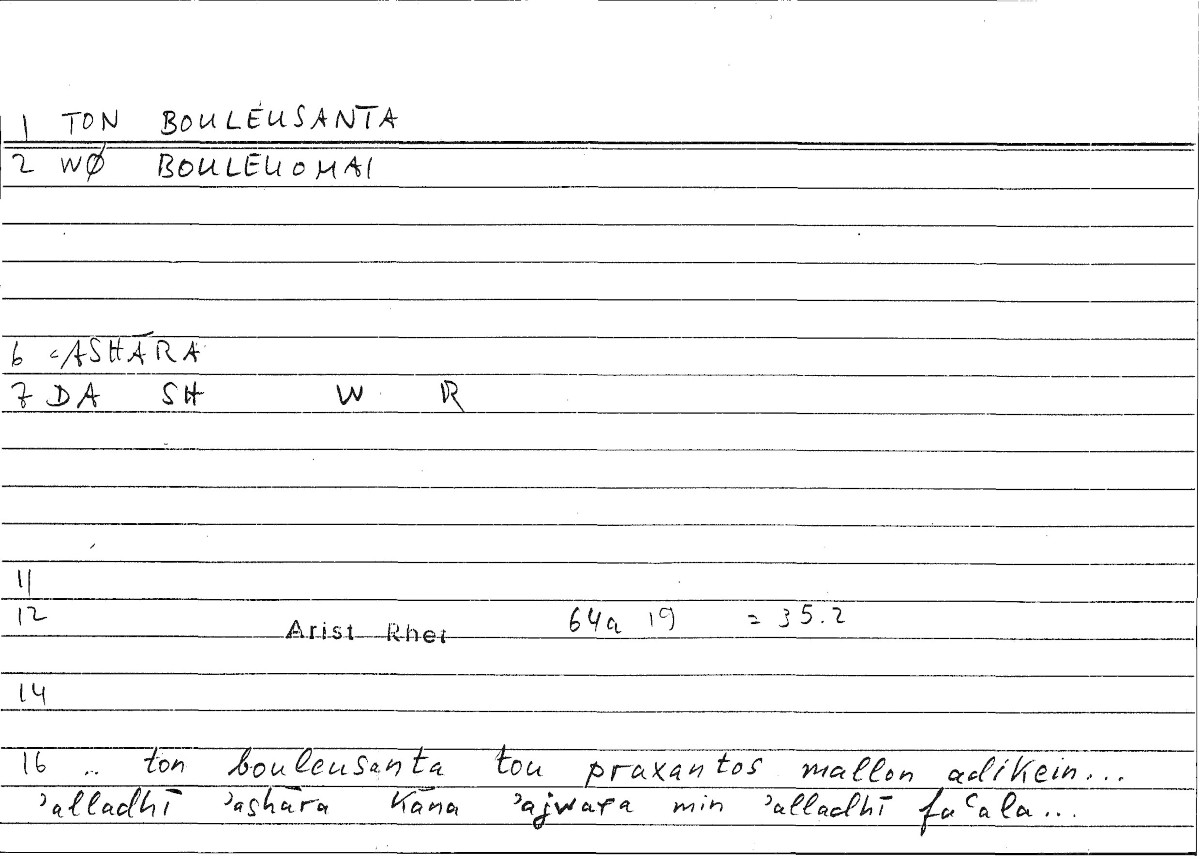 1 TON BOULEUSANTA
2 WØ BOULEUOMAI
6 ʿASHĀRA
7 DA SH W R
11
12 Arist Rhet 64a 19 = 35.2
14
16 .. ton bouleusanta tou praxantos mallon adikein...
ʾalladhī ʾashāra kāna ʾajwara min ʾalladhī faʿala...